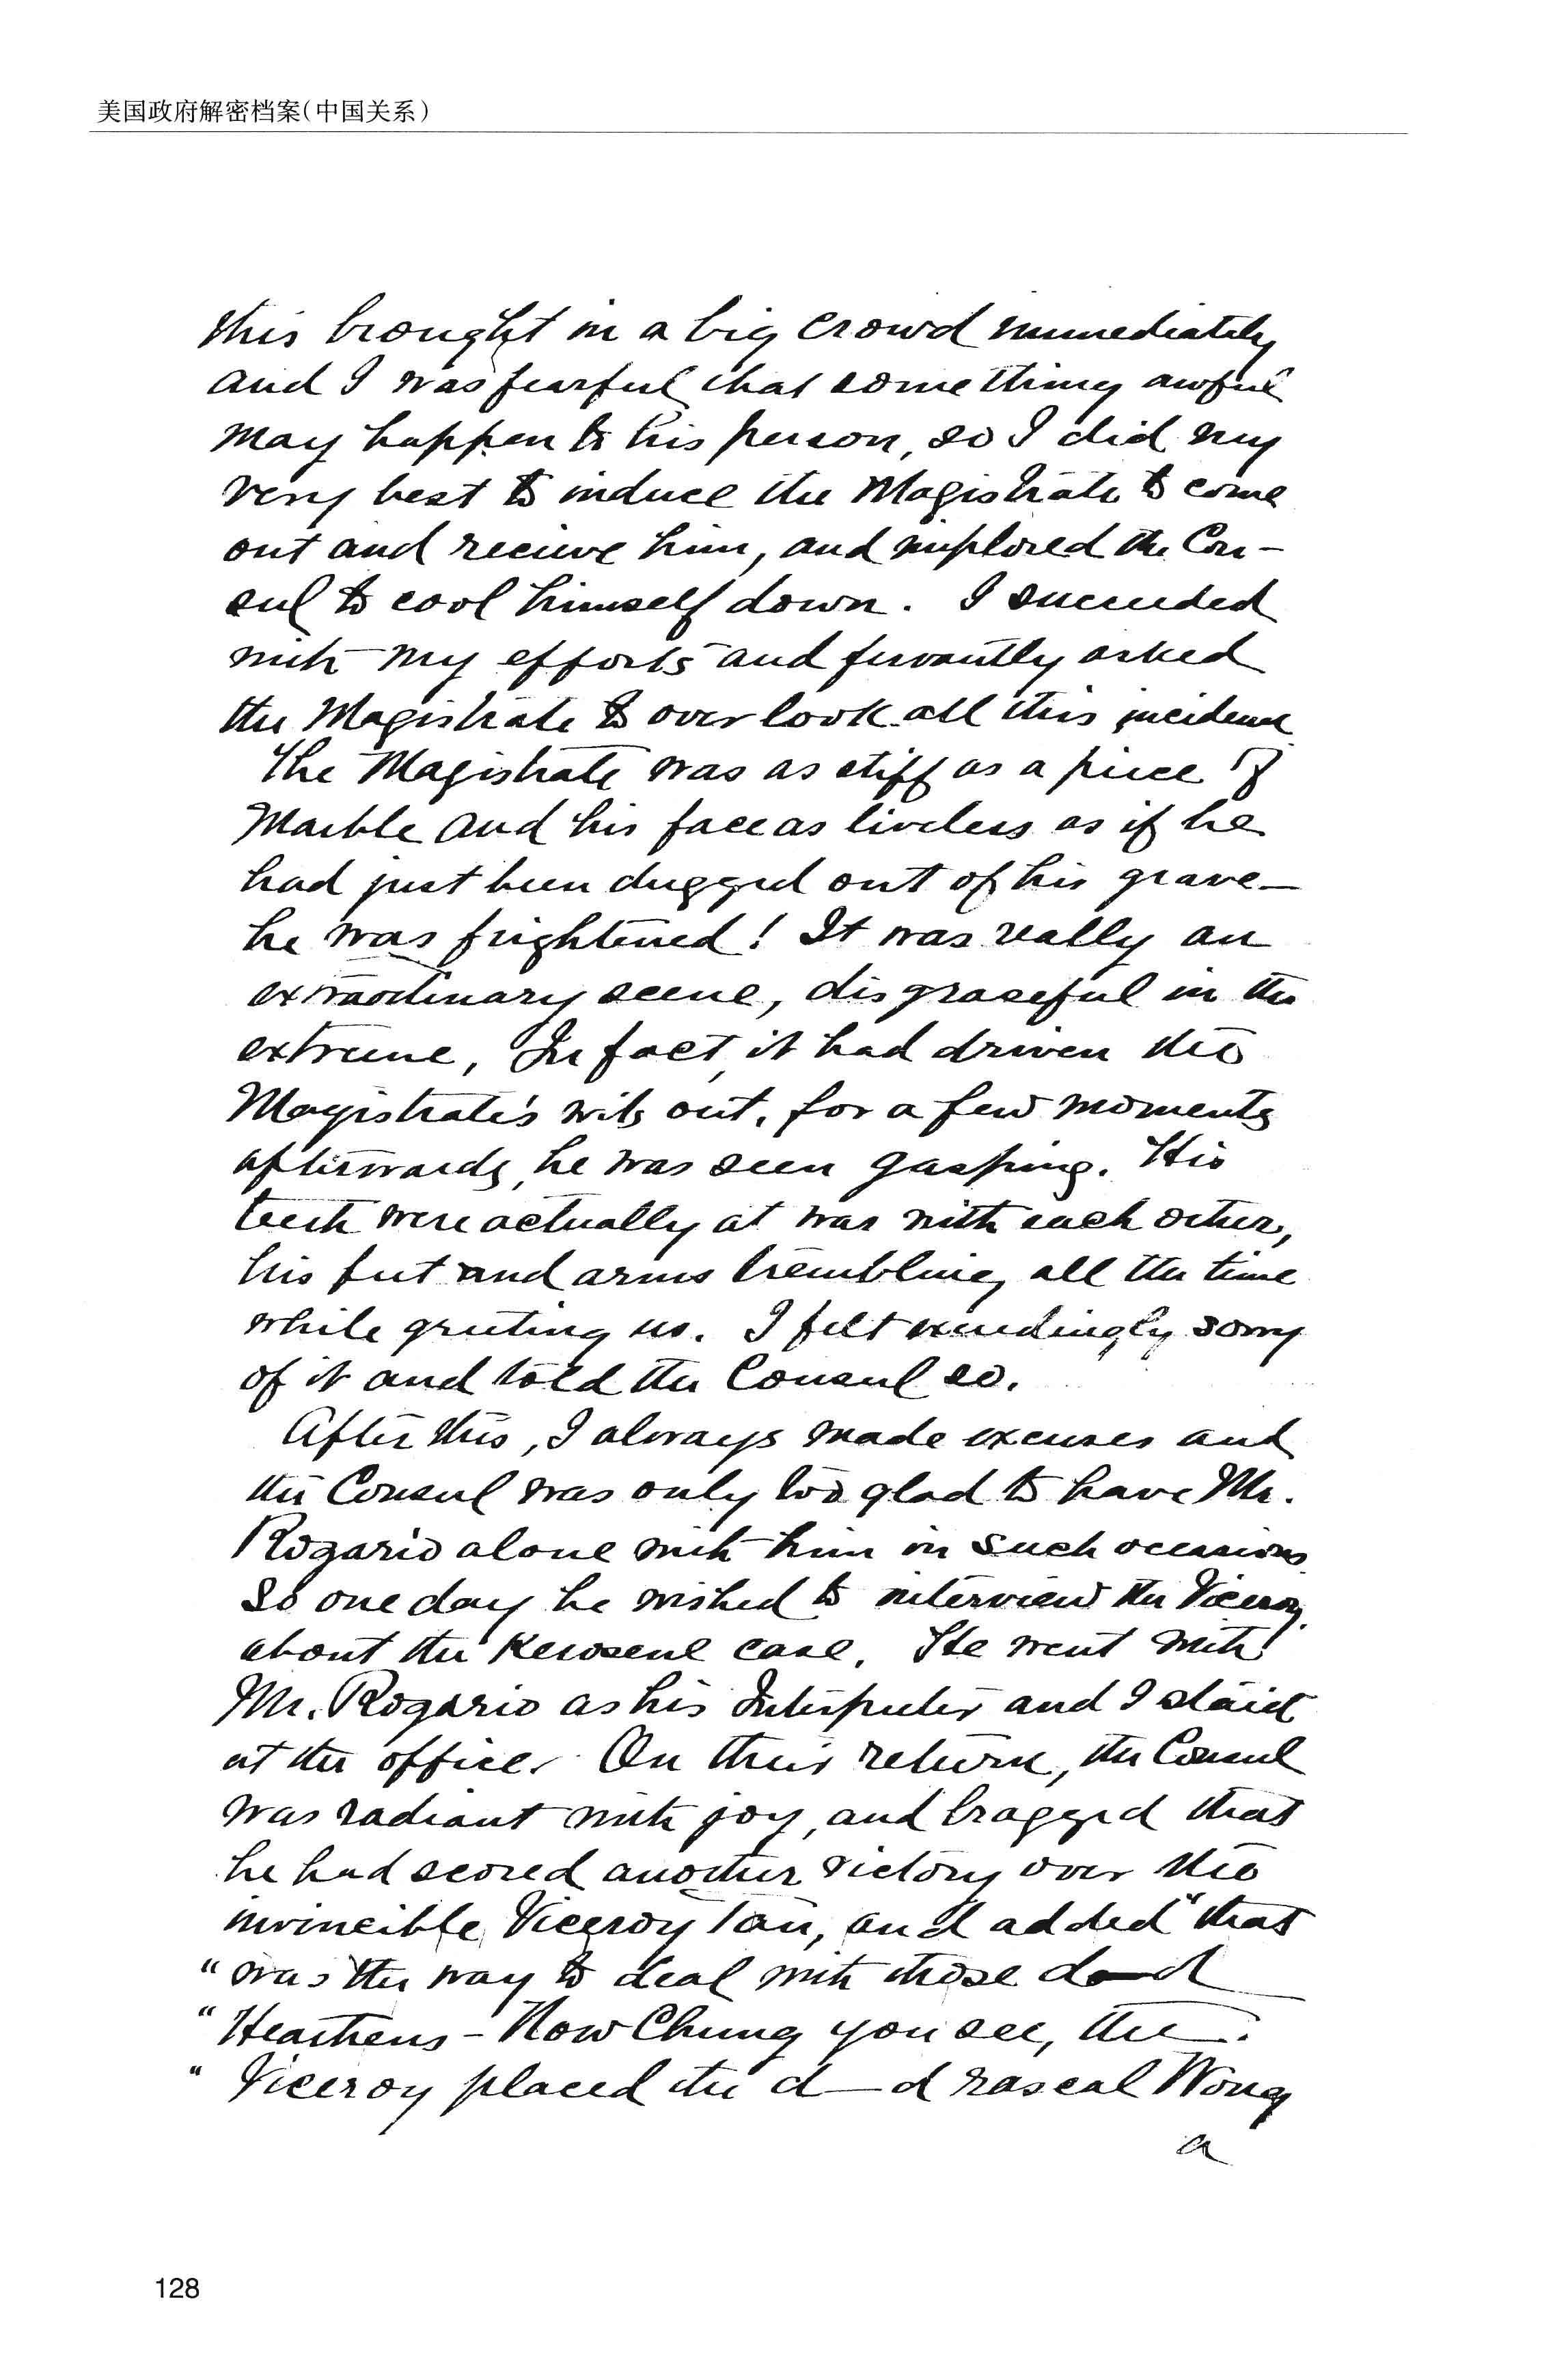 美国政府解密档案(中国关系)
this brought in a big crowd immediately
and I was fearful that something awful
may happen to his person, so I did my
very best to induce the Magistrate to come
out and recieve him, and implored the Con-
sul to cool himself down. I succeeded
with my efforts and fervantly asked
the Magistrate to over look all this incidence
The Magistrate was as stiff as a piece of
Marble and his face as liveless as if he
had just been dugged out of his grave—
he was frightened! It was really an
extraordinary scene, disgraseful in the
extreme, In fact, it had driven the
Magistrate's wits out, for a few moments
afterwards, he was seen gasping. His
teeth were actually at war with each other,
his feet and arms trembling all the time
while greeting us. I felt exceedingly sorry
of it and told the Consul so.
After this, I always made excuses and
the Consul was only too glad to have Mr.
Rogario alone with him in such occasions
So one day he wished to interview the Viceroy
about the Kerosene case. He went with
Mr. Rogario as his Interpreter and I staid
at the office. On their return, the Consul
was radiant with joy, and bragged that
he had scored another victory over the
invincible Viceroy Tan, and added "that
"was the way to deal with those d—d
"Heathens – Now Chung you see, the
"Viceroy placed the d—d rascal Wong
a
128